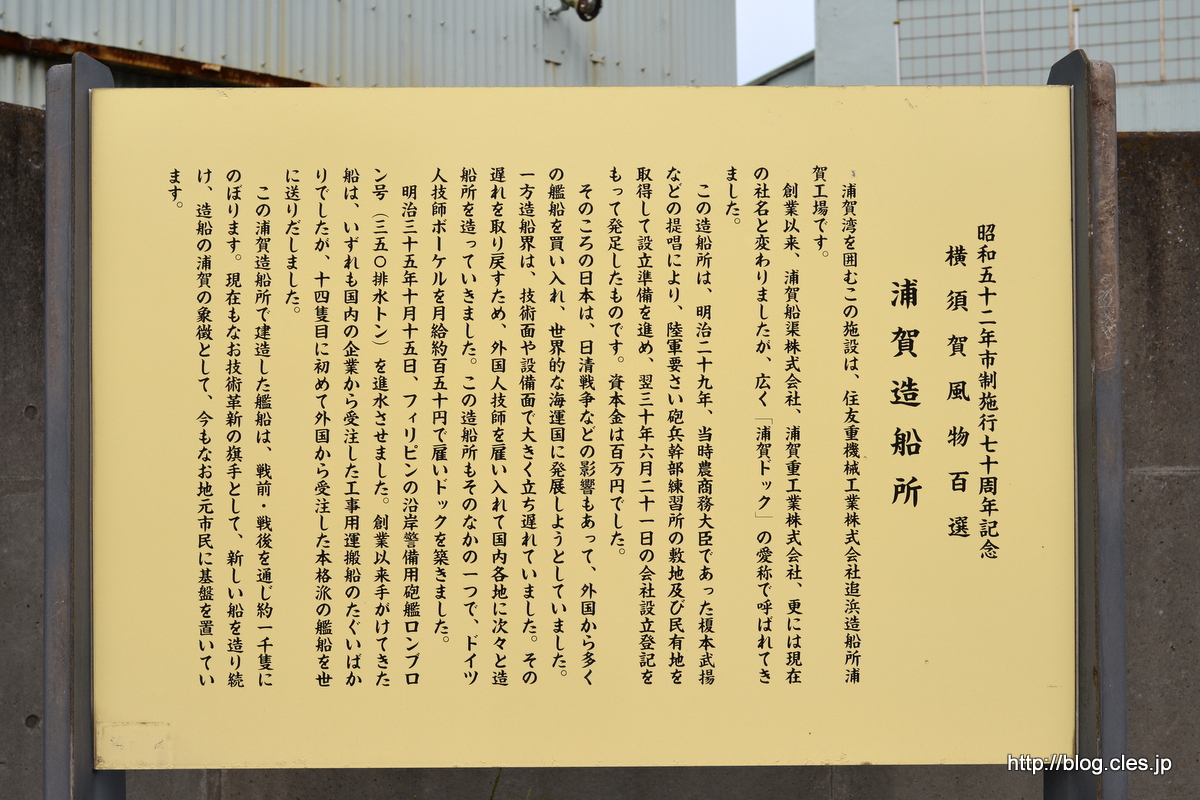 昭和五十二年市制施行七十周年記念
横須賀風物百選
浦賀造船所
浦賀湾を囲むこの施設は、住友重機械工業株式会社追浜造船所浦
賀工場です。
創業以来、浦賀船渠株式会社、浦賀重工業株式会社、更には現在
の社名と変わりましたが、広く「浦賀ドック」の愛称で呼ばれてき
ました。
この造船所は、明治二十九年、当時農商務大臣であった榎本武揚
などの提唱により、陸軍要さい砲兵幹部練習所の敷地及び民有地を
取得して設立準備を進め、翌三十年六月二十一日の会社設立登記を
もって発足したものです。資本金は百万円でした。
そのころの日本は、日清戦争などの影響もあって、外国から多く
の艦船を買い入れ、世界的な海運国に発展しようとしていました。
一方造船界は、技術面や設備面で大きく立ち遅れていました。その
遅れを取り戻すため、外国人技師を雇い入れて国内各地に次々と造
船所を造っていきました。この造船所もそのなかの一つで、ドイツ
人技師ボーケルを月給約百五十円で雇いドックを築きました。
明治三十五年十月十五日、フィリピンの沿岸警備用砲艦ロンブロ
ン号（三五〇排水トン）を進水させました。創業以来手がけてきた
船は、いずれも国内の企業から受注した工事用運搬船のたぐいばか
りでしたが、十四隻目に初めて外国から受注した本格派の艦船を世
に送りだしました。
この浦賀造船所で建造した艦船は、戦前・戦後を通じ約一千隻に
のぼります。現在もなお技術革新の旗手として、新しい船を造り続
け、造船の浦賀の象徴として、今もなお地元市民に基盤を置いてい
ます。
http://blog.cles.jp